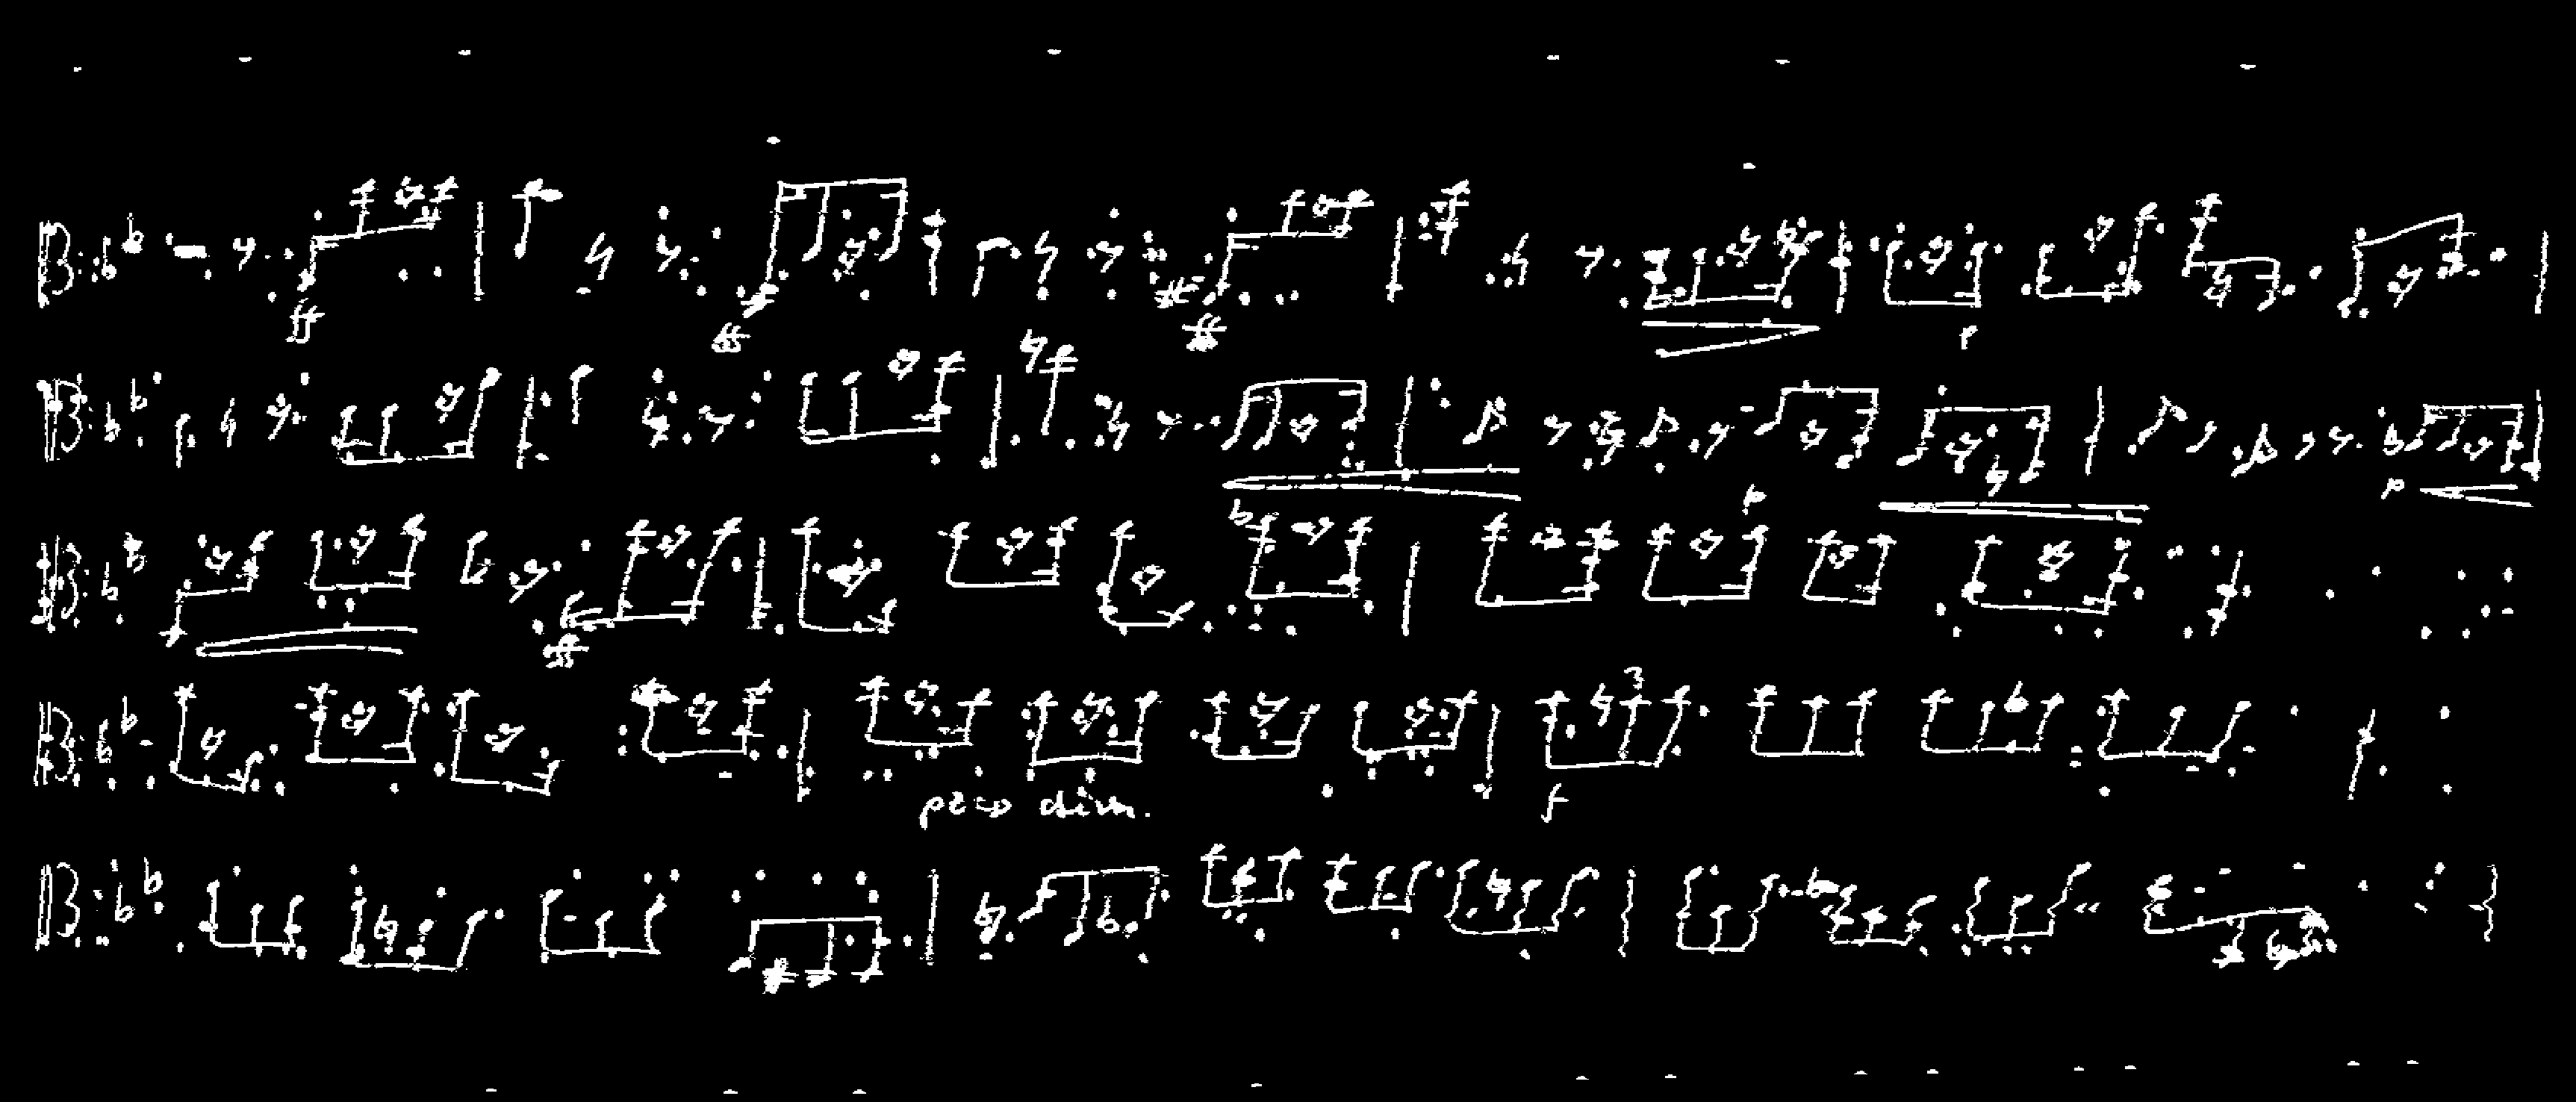 ff fff fff p
p p
fff
3
poco dim. f